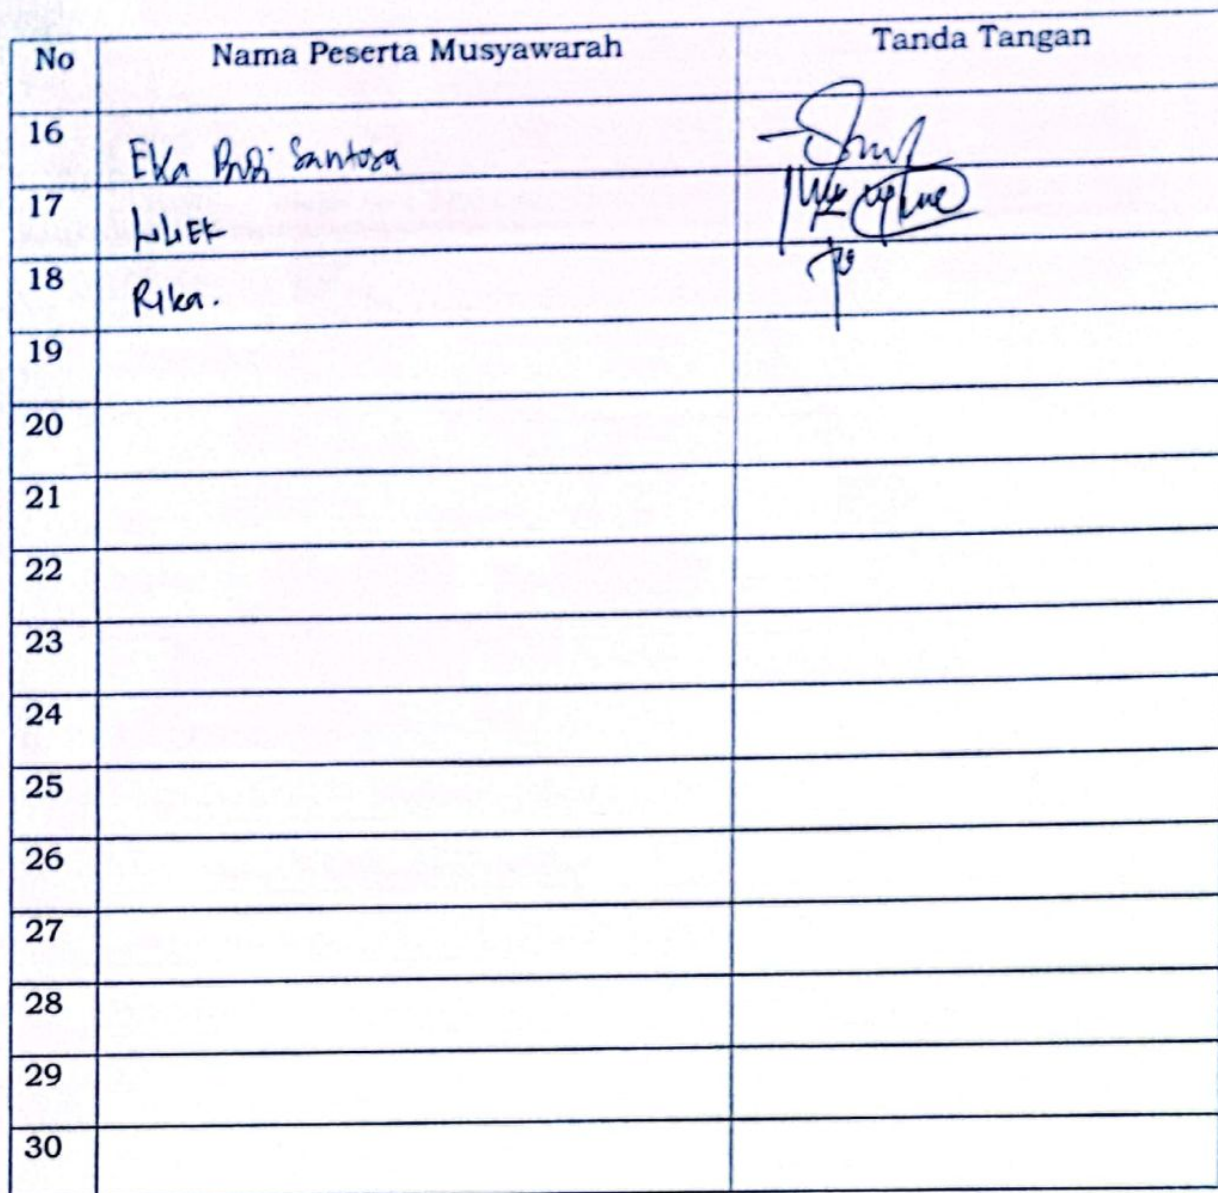 No Nama Peserta Musyawarah Tanda Tangan
16 Eka Budi Santosa
17 LULIEK
18 Rika.
19
20
21
22
23
24
25
26
27
28
29
30